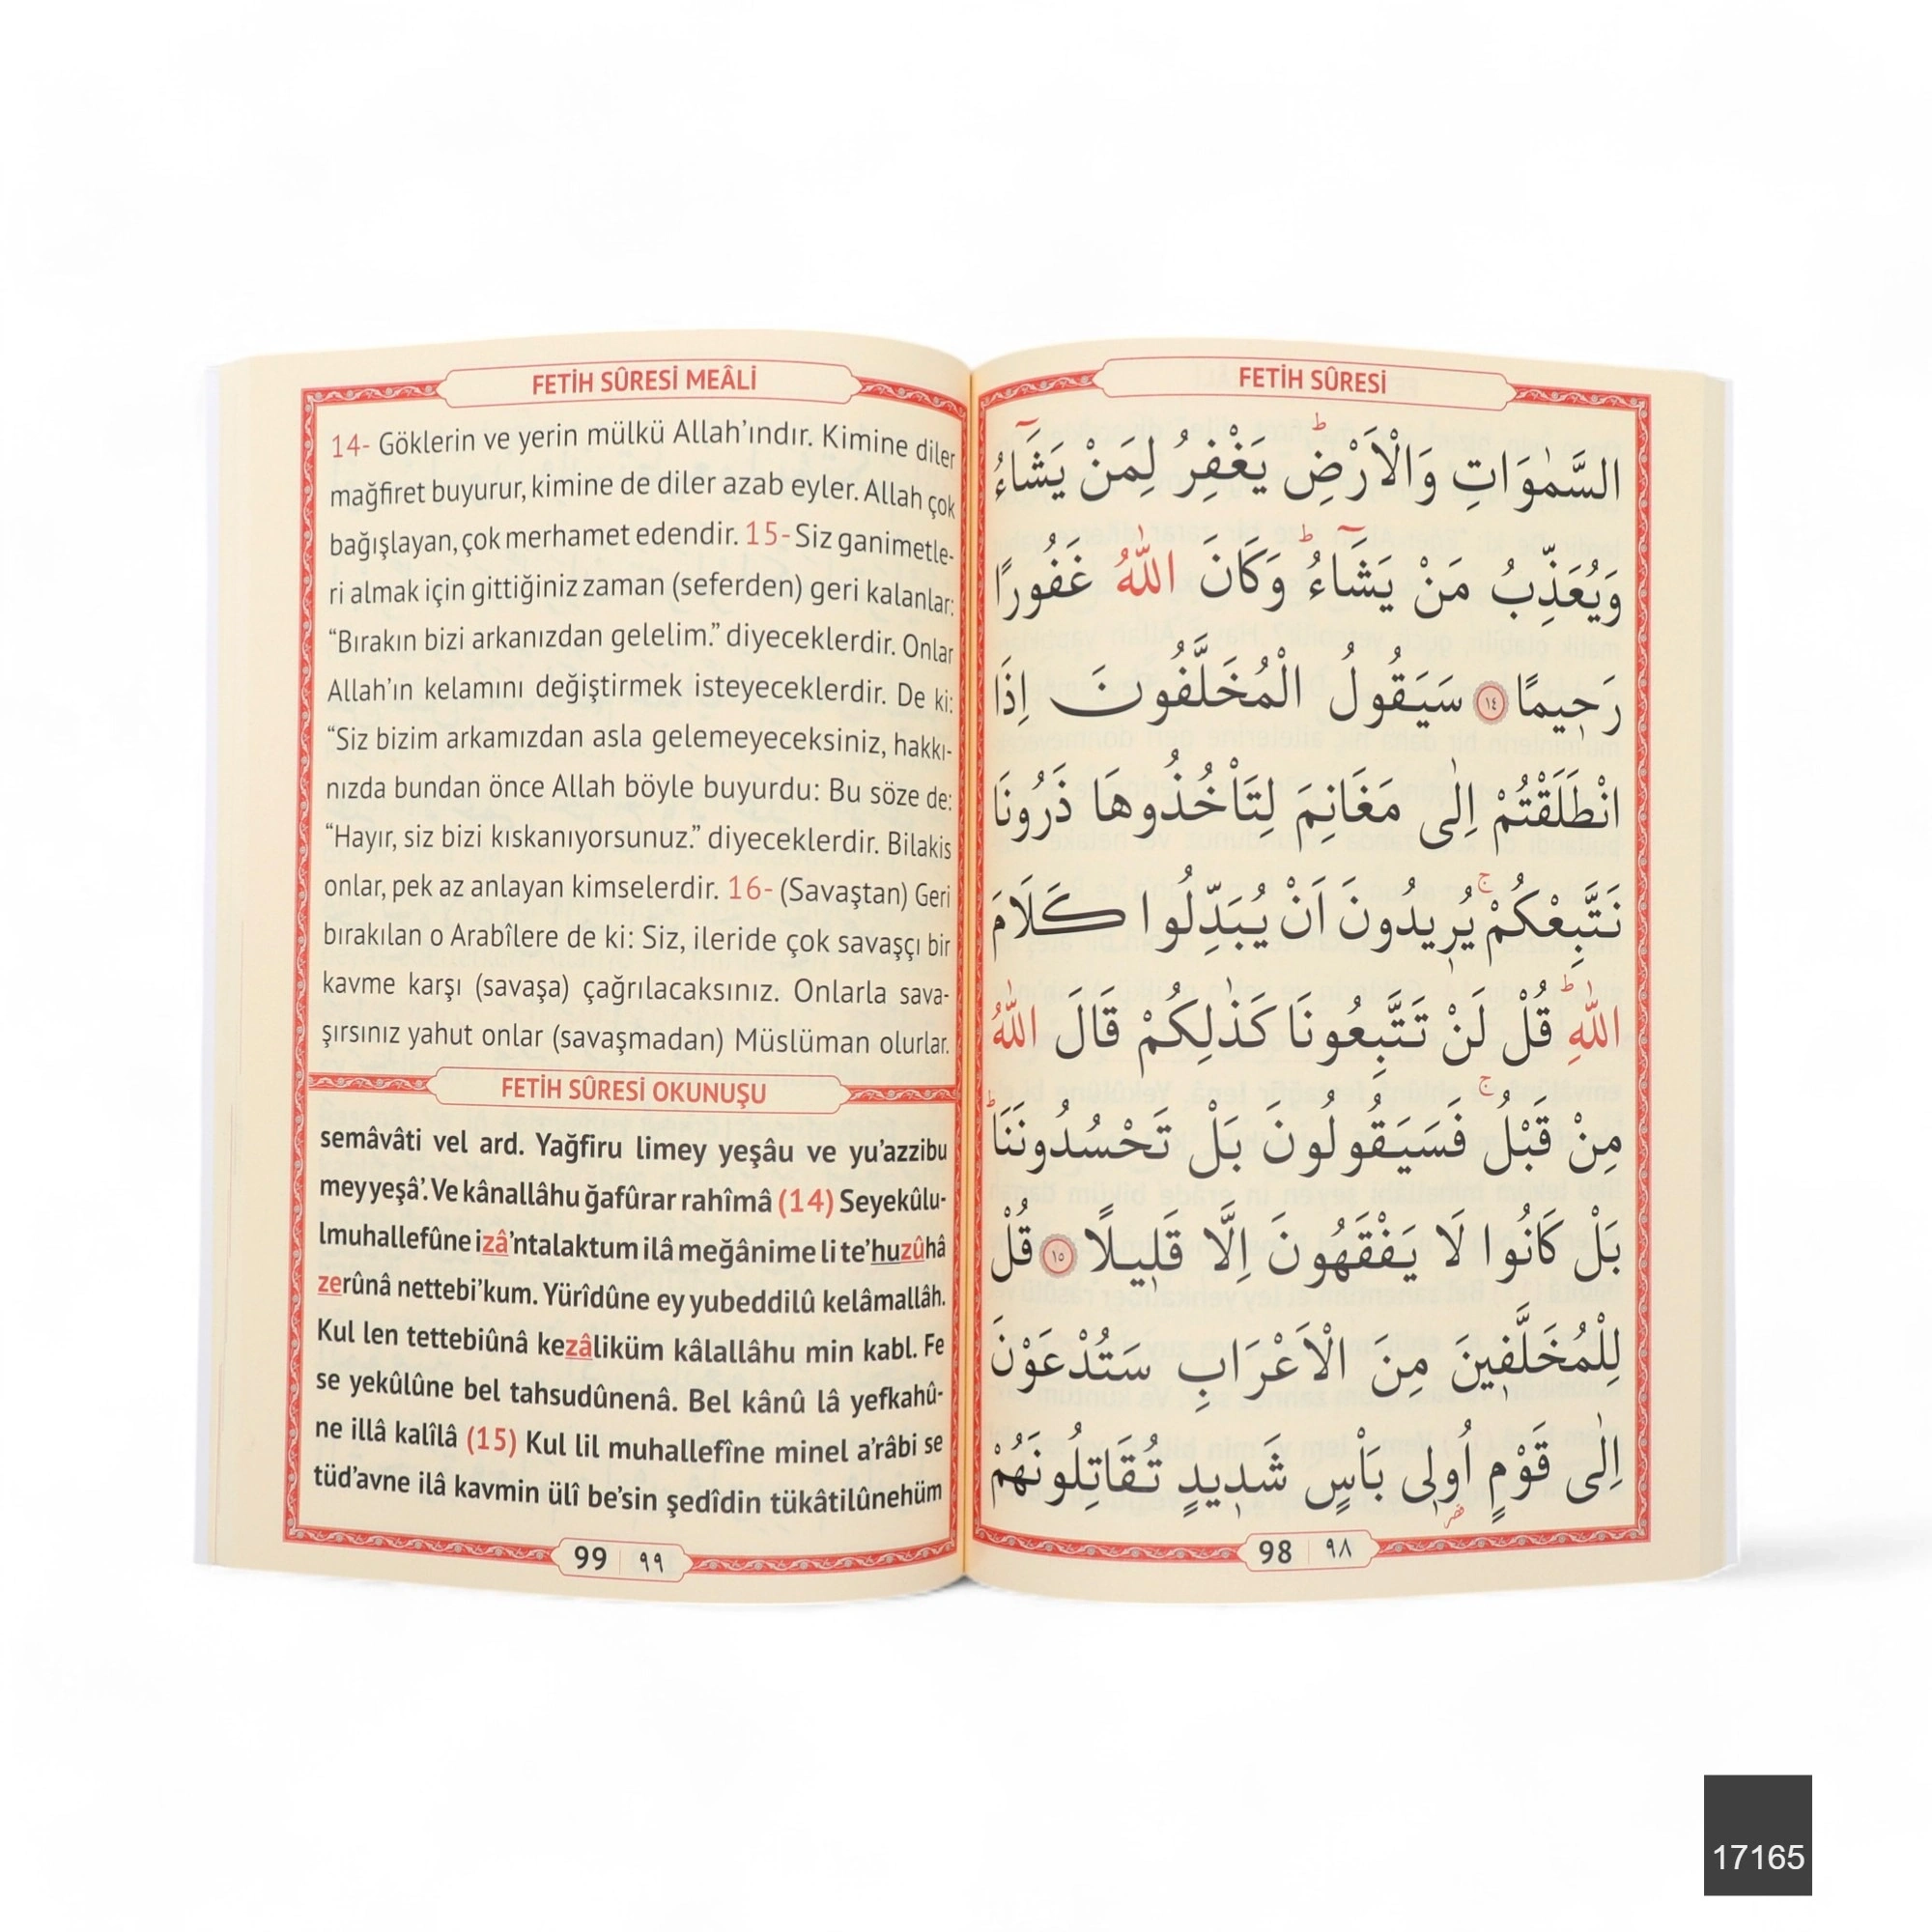 FETİH SÛRESİ MEÂLİ
14- Göklerin ve yerin mülkü Allah’ındır. Kimine diler
mağfiret buyurur, kimine de diler azab eyler. Allah çok
bağışlayan, çok merhamet edendir. 15- Siz ganimetle-
ri almak için gittiğiniz zaman (seferden) geri kalanlar:
“Bırakın bizi arkanızdan gelelim.” diyeceklerdir. Onlar
Allah’ın kelamını değiştirmek isteyeceklerdir. De ki:
“Siz bizim arkamızdan asla gelemeyeceksiniz, hakkı-
nızda bundan önce Allah böyle buyurdu: Bu söze de:
“Hayır, siz bizi kıskanıyorsunuz.” diyeceklerdir. Bilakis
onlar, pek az anlayan kimselerdir. 16- (Savaştan) Geri
bırakılan o Arabîlere de ki: Siz, ileride çok savaşçı bir
kavme karşı (savaşa) çağrılacaksınız. Onlarla sava-
şırsınız yahut onlar (savaşmadan) Müslüman olurlar.
FETİH SÛRESİ OKUNUŞU
semâvâti vel ard. Yağfiru limey yeşâu ve yu’azzibu
mey yeşâ’. Ve kânallâhu ğafûrar rahîmâ (14) Seyekûlu-
lmuhallefûne izâ’ntalaktum ilâ meğânime li te’huzûhâ
zerûnâ nettebi’kum. Yürîdûne ey yubeddilû kelâmallâh.
Kul len tettebiûnâ kezâliküm kâlallâhu min kabl. Fe
se yekûlûne bel tahsudûnenâ. Bel kânû lâ yefkahû-
ne illâ kalîlâ (15) Kul lil muhallefîne minel a’râbi se
tüd’avne ilâ kavmin ülî be’sin şedîdin tükâtilûnehüm
99 ٩٩
FETİH SÛRESİ
السَّمٰوَاتِ وَالْاَرْضِۜ يَغْفِرُ لِمَنْ يَشَٓاءُ
وَيُعَذِّبُ مَنْ يَشَٓاءُۜ وَكَانَ اللّٰهُ غَفُورًا
رَح۪يمًا ١٤ سَيَقُولُ الْمُخَلَّفُونَ اِذَا
انْطَلَقْتُمْ اِلٰى مَغَانِمَ لِتَأْخُذُوهَا ذَرُونَا
نَتَّبِعْكُمْۚ يُر۪يدُونَ اَنْ يُبَدِّلُوا كَلَامَ
اللّٰهِۜ قُلْ لَنْ تَتَّبِعُونَا كَذٰلِكُمْ قَالَ اللّٰهُ
مِنْ قَبْلُۚ فَسَيَقُولُونَ بَلْ تَحْسُدُونَنَاۜ
بَلْ كَانُوا لَا يَفْقَهُونَ اِلَّا قَل۪يلًا ١٥ قُلْ
لِلْمُخَلَّف۪ينَ مِنَ الْاَعْرَابِ سَتُدْعَوْنَ
اِلٰى قَوْمٍ اُو۬ل۪ي بَأْسٍ شَد۪يدٍ تُقَاتِلُونَهُمْ
98 ٩٨
17165